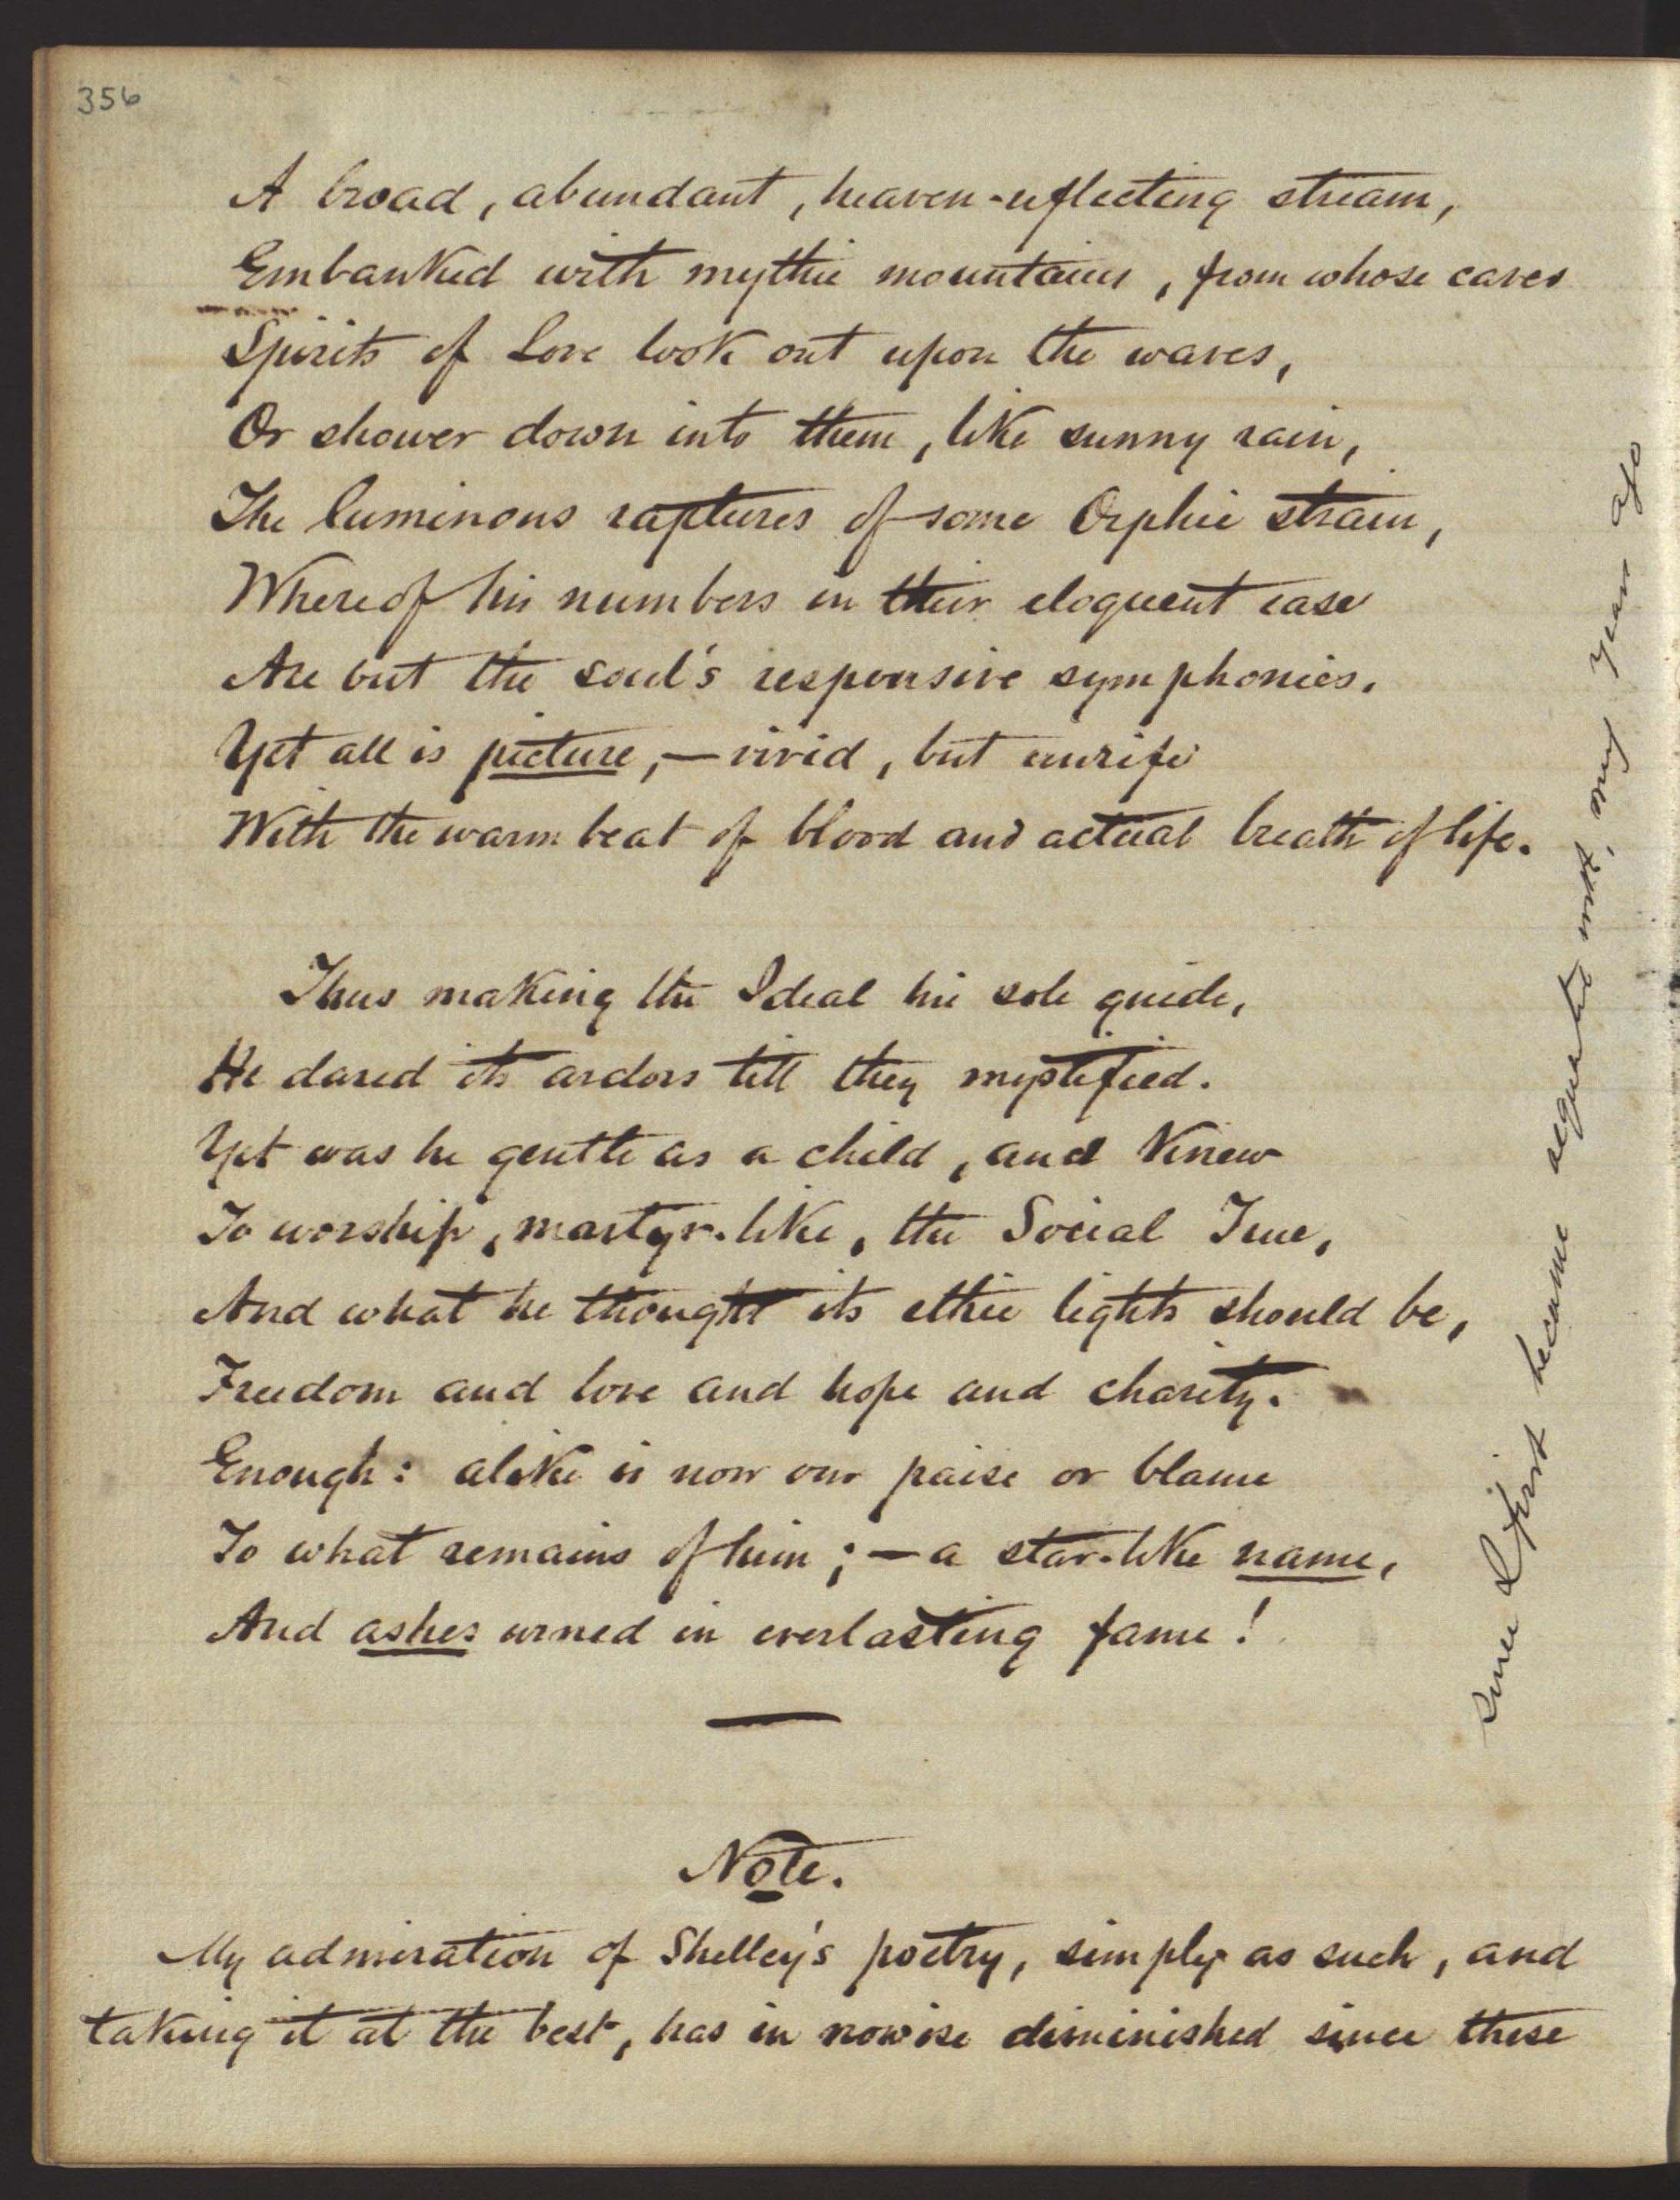 356
A broad, abundant, heaven-reflecting stream,
Embanked with mythic mountains, from whose caves
Spirits of Love look out upon the waves,
Or shower down into them, like sunny rain,
The luminous raptures of some Orphic strain,
Whereof his numbers in their eloquent ease
Are but the soul's responsive symphonies.
Yet all is picture,—vivid, but unrife
With the warm beat of blood and actual breath of life.
Thus making the Ideal his sole guide,
He dared its ardors till they mystified.
Yet was he gentle as a child, and knew
To worship, martyr-like, the Social True,
And what he thought its ethic lights should be,
Freedom and love and hope and charity.
Enough: alike is now our praise or blame
To what remains of him;—a star-like name,
And ashes urned in everlasting fame!
Note.
My admiration of Shelley's poetry, simply as such, and
taking it at the best, has in nowise diminished since these
since I first became acquainted with, many years ago